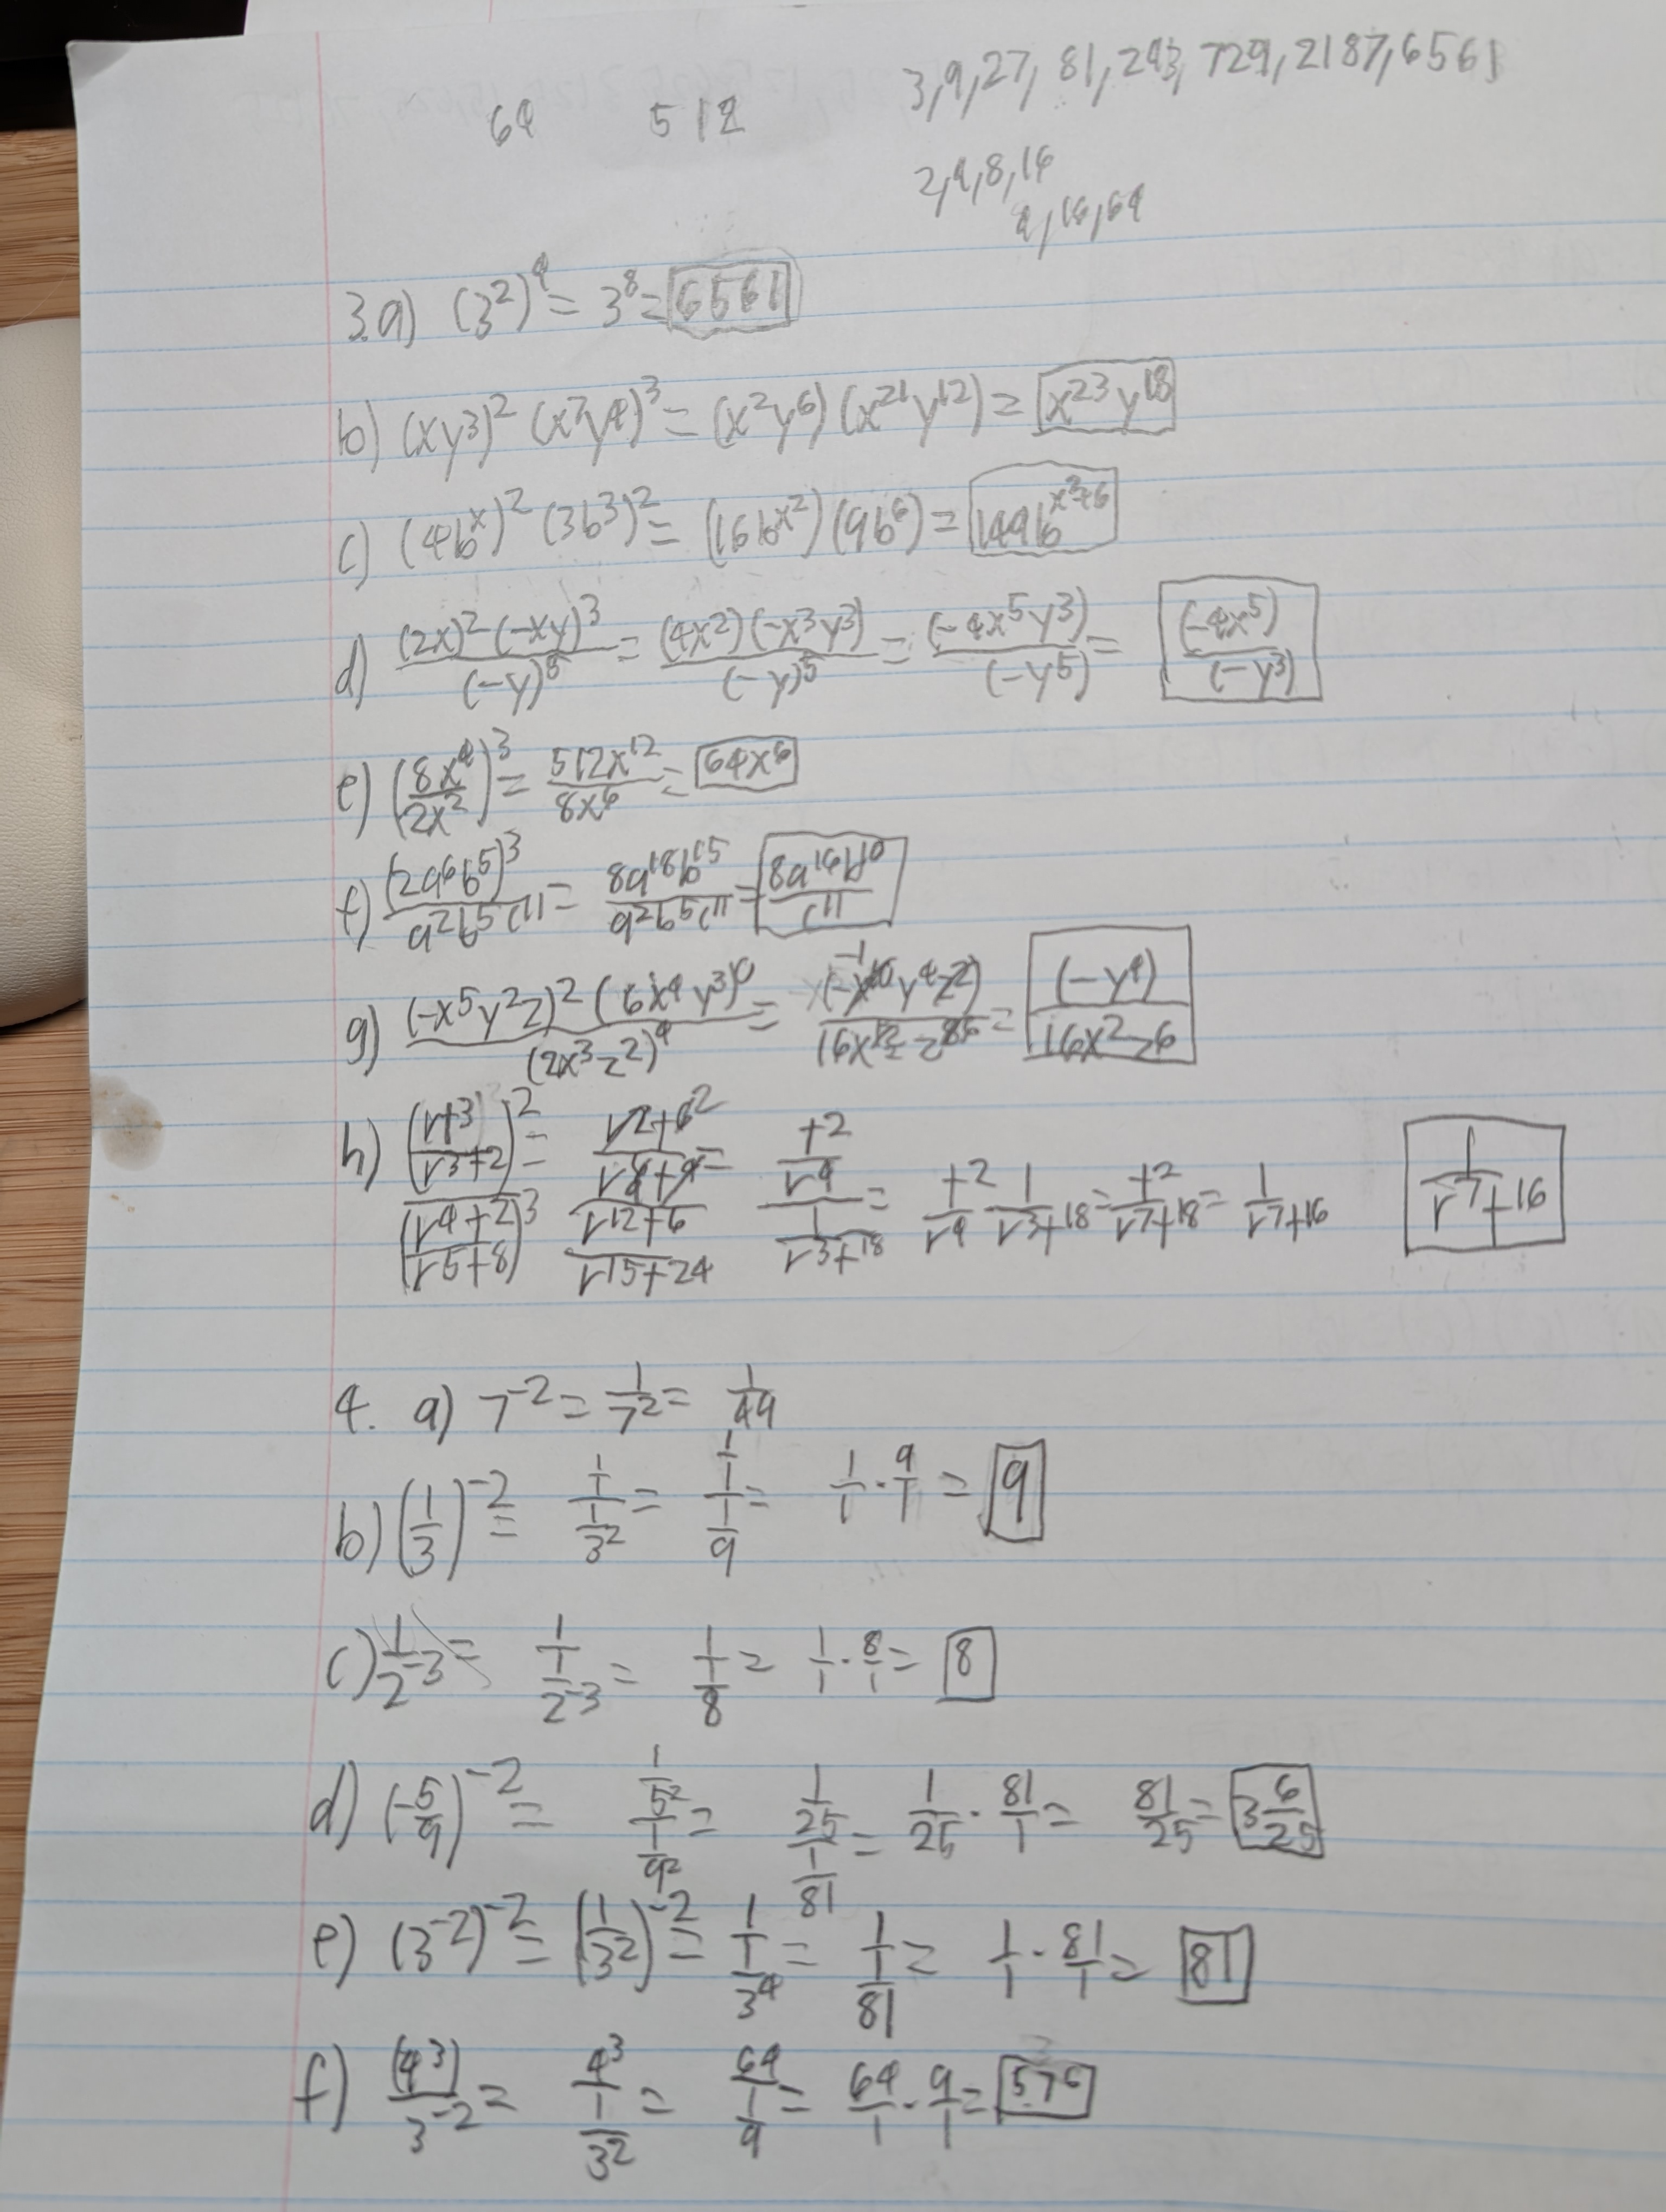 64 512 3,9,27,81,243,729,2187,6561
2,4,8,16
4,16,64
3.a) (3²)⁴ = 3⁸ = 6561
b) (xy³)² (x⁷y⁴)³ = (x²y⁶) (x²¹y¹²) = x²³y¹⁸
c) (4bˣ)² (3b³)² = (16b^x²) (9b⁶) = 144b^x²+6
d) (2x)² (-xy)³/(-y)⁵ = (4x²)(-x³y³)/(-y)⁵ = (-4x⁵y³)/(-y⁵) = (-4x⁵)/(-y³)
e) (8x⁴/2x²)³ = 512x¹²/8x⁶ = 64x⁶
f) (2a⁶b⁵)³/a²b⁵c¹¹ = 8a¹⁸b¹⁵/a²b⁵c¹¹ = 8a¹⁶b¹⁰/c¹¹
g) (-x⁵y²z)² (6x⁴y³)⁰/(2x³z²)⁴ = (-x¹⁰y⁴z²)/16x¹²z⁸ = (-y⁴)/16x²z⁶
h) (rt³/r³t²)²/(r⁴t²/r⁵t⁸)³ = r²t⁶/r⁶t⁴/r¹²t⁶/r¹⁵t²⁴ = t²/r⁴/1/r³t¹⁸ = t²/r⁴ 1/r³t¹⁸ = t²/r⁷t¹⁸ = 1/r⁷t¹⁶ 1/r⁷t¹⁶
4. a) 7⁻² = 1/7² = 1/49
b) (1/3)⁻² = 1/1/3² = 1/1/9 = 1/1 · 9/1 = 9
c) 1/2⁻³ = 1/1/2⁻³ = 1/1/8 = 1/1 · 8/1 = 8
d) (-5/9)⁻² = 1/5²/1/9² = 1/25/1/81 = 1/25 · 81/1 = 81/25 = 3 6/25
e) (3⁻²)⁻² = (1/3²)⁻² = 1/1/3⁴ = 1/1/81 = 1/1 · 81/1 = 81
f) (4³)/3⁻² = 4³/1/3² = 64/1/9 = 64/1 · 9/1 = 576